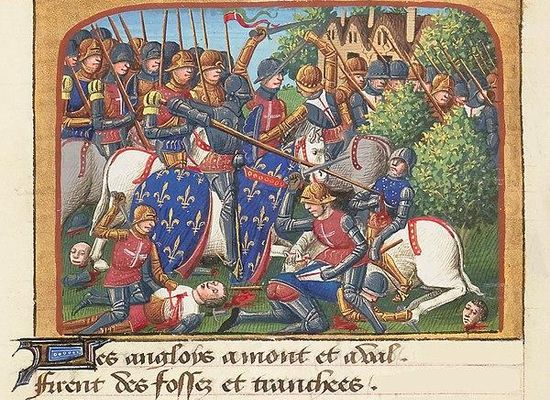 Les anglois amont et aval.
Firent des fossez et tranchees.